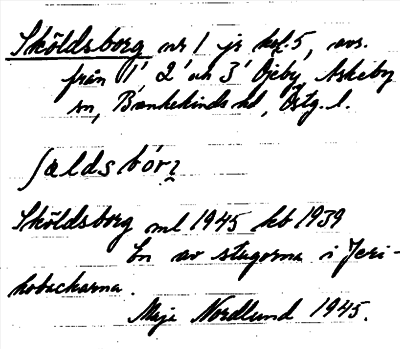 Sköldsborg nr 1 js kol. 5, avs.
från 1' 2' och 3' Öjeby, Askeby
sn, Bankekinds hd, Östg. l.
ʃældsbórʒ
Sköldsborg ml 1945 kb 1939
En av stugorna i Jeri-
kobackarna.
Maja Nordlund 1945.